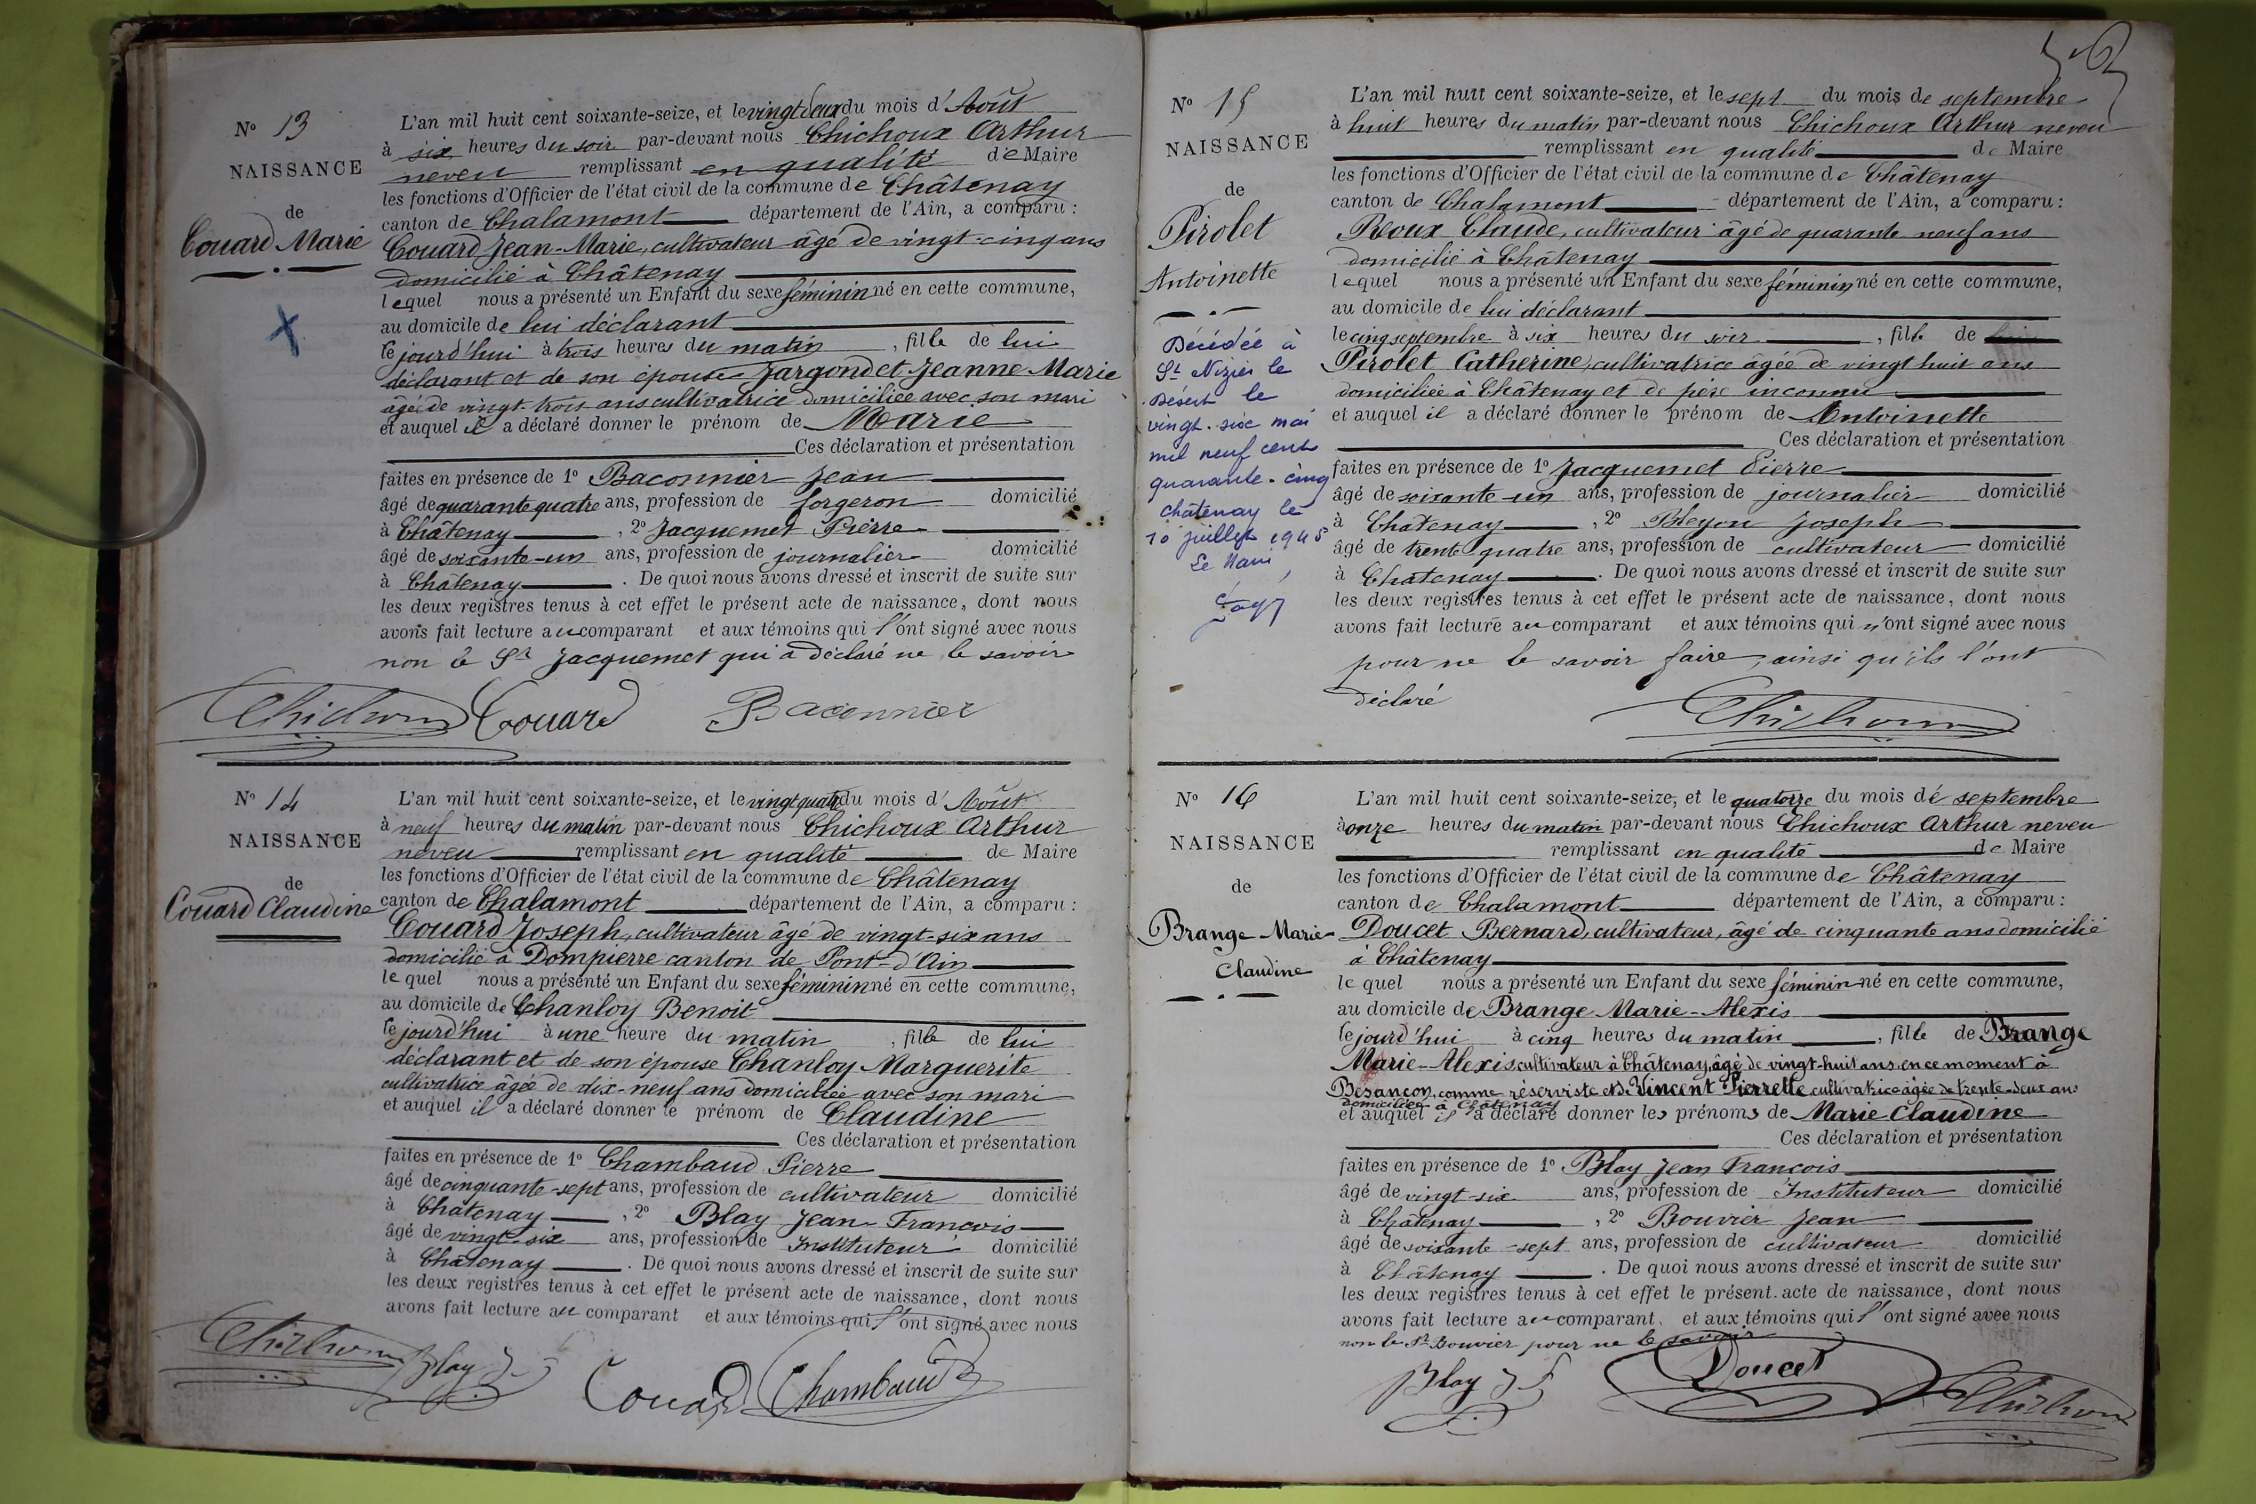 N° 13
NAISSANCE
de
Couard Marie
L'an mil huit cent soixante-seize, et le vingt deux du mois d'Août
à six heures du soir par-devant nous Chichoux Arthur
neveu remplissant en qualité de Maire
les fonctions d'Officier de l'état civil de la commune de Châtenay
canton de Chalamont département de l'Ain, a comparu :
Couard Jean-Marie, cultivateur âgé de vingt-cinq ans
domicilié à Châtenay
lequel nous a présenté un Enfant du sexe féminin né en cette commune,
au domicile de lui déclarant
le jourd'hui à trois heures du matin, fille de lui
déclarant et de son épouse Jargondet Jeanne-Marie
âgée de vingt-trois ans cultivatrice domiciliée avec son mari
et auquel il a déclaré donner le prénom de Marie
Ces déclaration et présentation
faites en présence de 1° Baconnier Jean
âgé de quarante quatre ans, profession de forgeron domicilié
à Châtenay, 2° Jacquemet Pierre
âgé de soixante-un ans, profession de journalier domicilié
à Châtenay. De quoi nous avons dressé et inscrit de suite sur
les deux registres tenus à cet effet le présent acte de naissance, dont nous
avons fait lecture au comparant et aux témoins qui l'ont signé avec nous
non le Sr Jacquemet qui a déclaré ne le savoir
Chichoux Couard Baconnier
N° 14
NAISSANCE
de
Couard Claudine
L'an mil huit cent soixante-seize, et le vingt quatre du mois d'Août
à neuf heures du matin par-devant nous Chichoux Arthur
neveu remplissant en qualité de Maire
les fonctions d'Officier de l'état civil de la commune de Châtenay
canton de Chalamont département de l'Ain, a comparu :
Couard Joseph, cultivateur âgé de vingt-six ans
domicilié à Dompierre canton de Pont-d'Ain
le quel nous a présenté un Enfant du sexe féminin né en cette commune,
au domicile de Chanloy Benoit
le jourd'hui à une heure du matin, fille de lui
déclarant et de son épouse Chanloy Marguerite
cultivatrice âgée de dix-neuf ans domiciliée avec son mari
et auquel il a déclaré donner le prénom de Claudine
Ces déclaration et présentation
faites en présence de 1° Chambaud Pierre
âgé de cinquante-sept ans, profession de cultivateur domicilié
à Châtenay, 2° Blay Jean-François
âgé de vingt-six ans, profession de Instituteur domicilié
à Châtenay. De quoi nous avons dressé et inscrit de suite sur
les deux registres tenus à cet effet le présent acte de naissance, dont nous
avons fait lecture au comparant et aux témoins qui l'ont signé avec nous
Chichoux Blay J F Couard Chambaud
N° 15
NAISSANCE
de
Pirolet
Antoinette
Décédée à
St Nizier le
Désert le
vingt-six mai
mil neuf cent
quarante-cinq
châtenay le
10 juillet 1945
Le Maire,
L'an mil huit cent soixante-seize, et le sept du mois de septembre
à huit heures du matin par-devant nous Chichoux Arthur neveu
remplissant en qualité de Maire
les fonctions d'Officier de l'état civil de la commune de Châtenay
canton de Chalamont département de l'Ain, a comparu :
Reoux Claude, cultivateur âgé de quarante neuf ans
domicilié à Châtenay
lequel nous a présenté un Enfant du sexe féminin né en cette commune,
au domicile de lui déclarant
le cinq septembre à six heures du soir, fille de
Pirolet Catherine, cultivatrice âgée de vingt huit ans
domiciliée à Châtenay et de père inconnu
et auquel il a déclaré donner le prénom de Antoinette
Ces déclaration et présentation
faites en présence de 1° Jacquemet Pierre
âgé de soixante-un ans, profession de journalier domicilié
à Châtenay, 2° Bleyon Joseph
âgé de trente quatre ans, profession de cultivateur domicilié
à Châtenay. De quoi nous avons dressé et inscrit de suite sur
les deux registres tenus à cet effet le présent acte de naissance, dont nous
avons fait lecture au comparant et aux témoins qui n'ont signé avec nous
pour ne le savoir faire, ainsi qu'ils l'ont
déclaré
Chichoux
N° 16
NAISSANCE
de
Brange Marie-
Claudine
L'an mil huit cent soixante-seize, et le quatorze du mois de septembre
à onze heures du matin par-devant nous Chichoux Arthur neveu
remplissant en qualité de Maire
les fonctions d'Officier de l'état civil de la commune de Châtenay
canton de Chalamont département de l'Ain, a comparu :
Doucet Bernard, cultivateur, âgé de cinquante ans domicilié
à Châtenay
le quel nous a présenté un Enfant du sexe féminin né en cette commune,
au domicile de Brange Marie-Alexis
le jourd'hui à cinq heures du matin, fille de Brange
Marie-Alexis, cultivateur à Châtenay, âgé de vingt-huit ans, en ce moment à
Besançon, comme réserviste et de Vincent Pierrette cultivatrice âgée de trente-deux ans
domiciliée à Châtenay
et auquel il a déclaré donner les prénoms de Marie Claudine
Ces déclaration et présentation
faites en présence de 1° Blay Jean François
âgé de vingt-six ans, profession de Instituteur domicilié
à Châtenay, 2° Bouvier Jean
âgé de soixante-sept ans, profession de cultivateur domicilié
à Châtenay. De quoi nous avons dressé et inscrit de suite sur
les deux registres tenus à cet effet le présent acte de naissance, dont nous
avons fait lecture au comparant et aux témoins qui l'ont signé avec nous
non le Sr Bouvier pour ne le savoir
Blay J F Doucet Chichoux